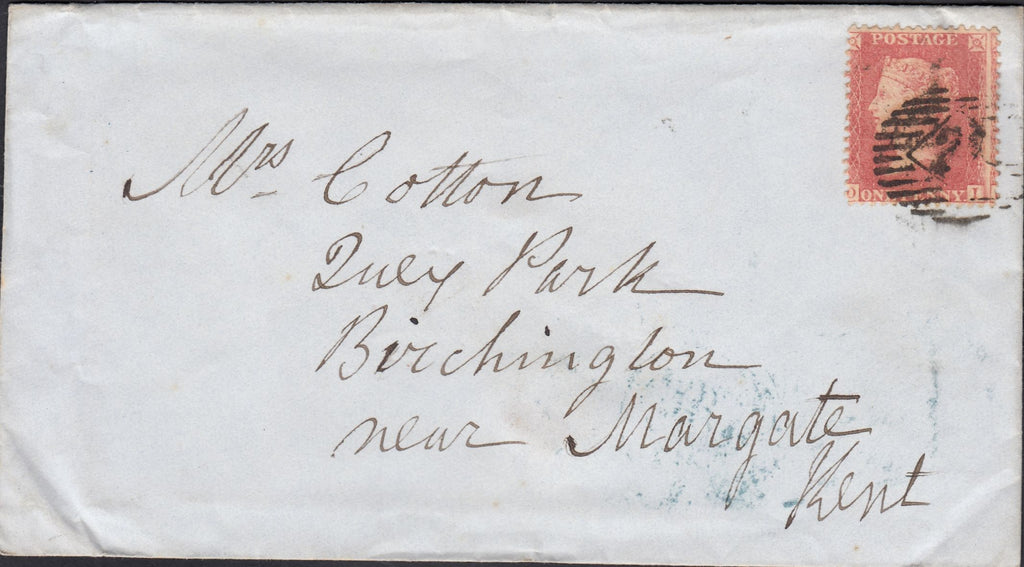 POSTAGE
ONE PENNY
Mrs Cotton
Quex Park
Birchington
near Margate
Kent